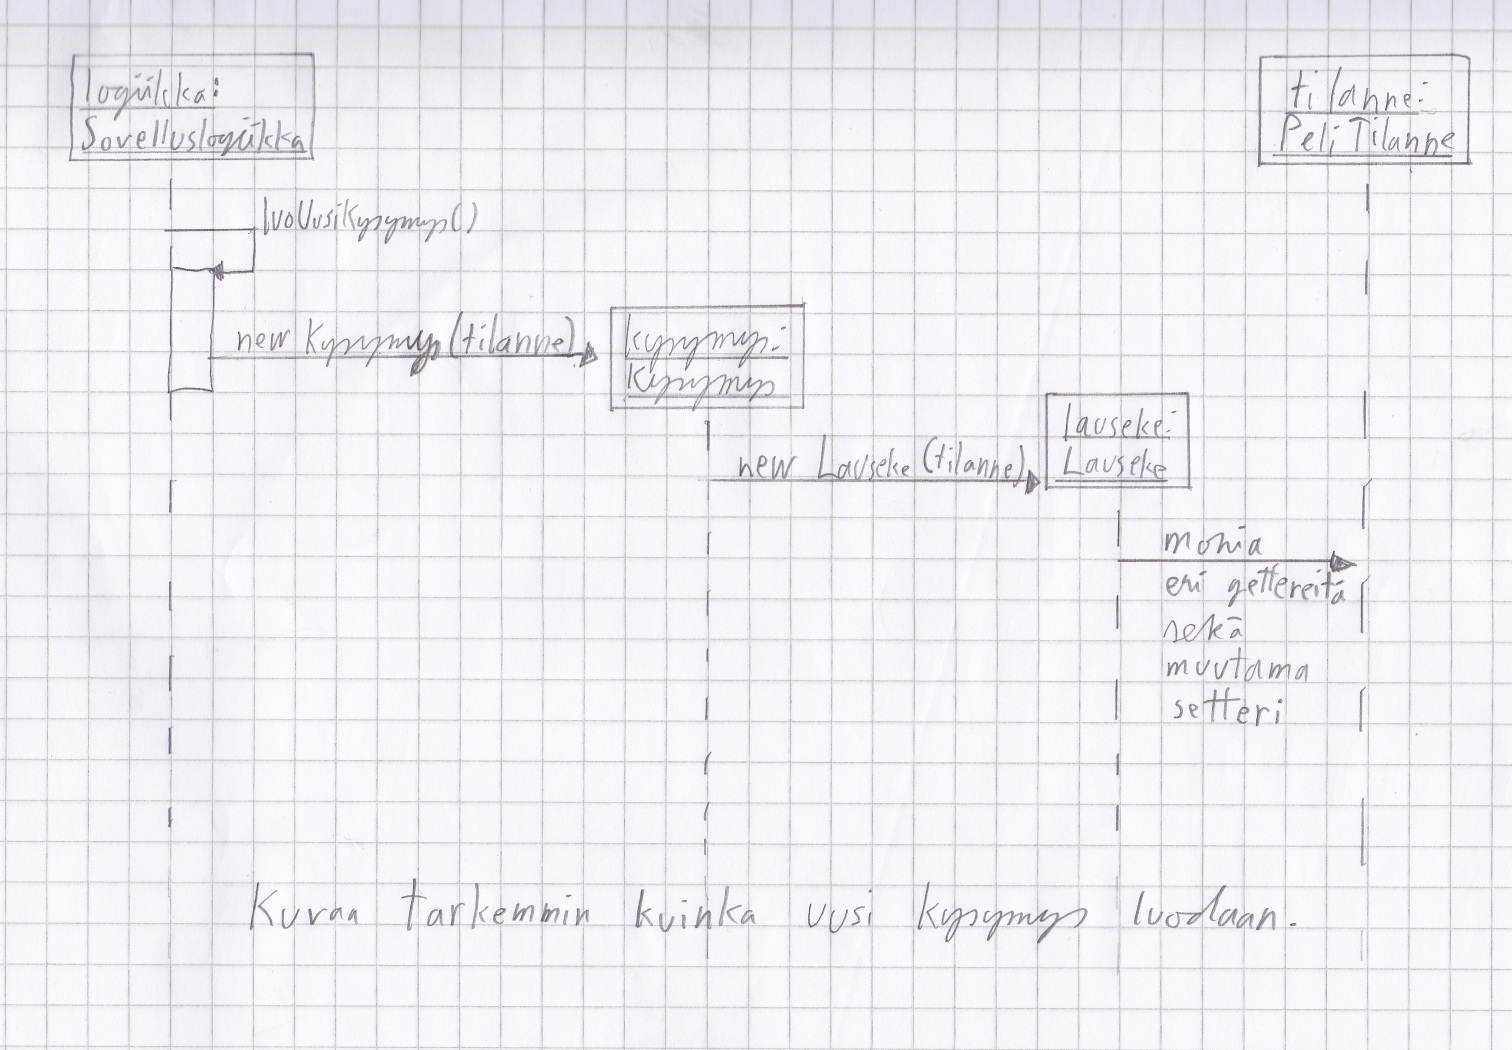 logiikka:
Sovelluslogiikka
tilanne:
PeliTilanne
luoUusiKysymys()
new Kysymys(tilanne)
kysymys:
Kysymys
new Lauseke(tilanne)
lauseke:
Lauseke
monia
eri gettereitä
sekä
muutama
setteri
Kuvaa tarkemmin kuinka uusi kysymys luodaan.